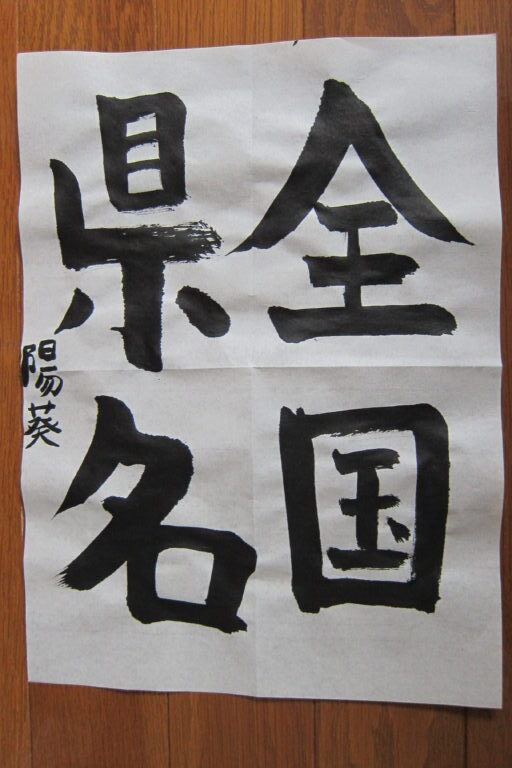 全国
県名
陽葵